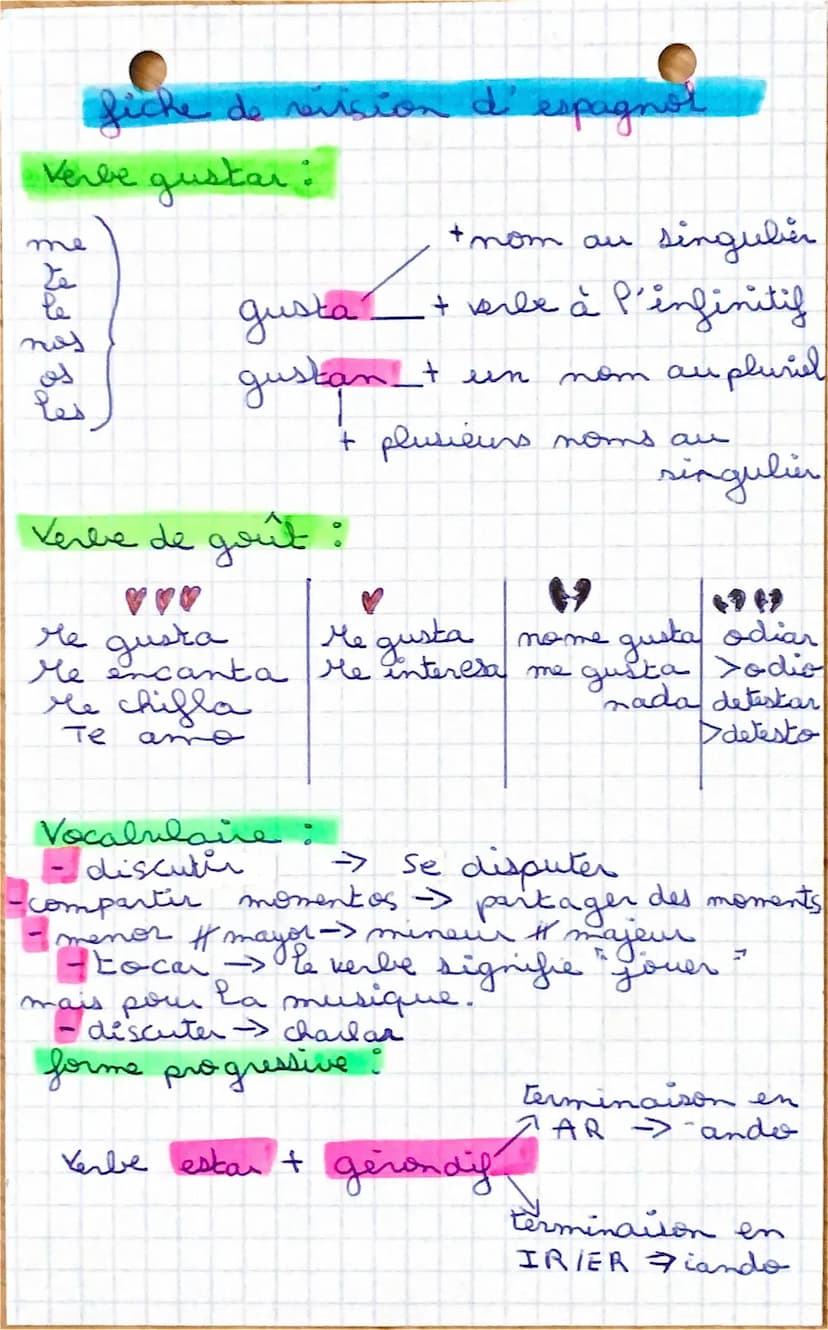 fiche de révision d'espagnol
Verbe gustar :
me
te
le
nos
os
les
+ nom au singulier
gusta + verbe à l'infinitif
gustan + un nom au pluriel
+ plusieurs noms au
singulier
Verbe de goût :
Me gusta
Me encanta
Me chifla
Te amo
Me gusta
Me interesa
no me gusta
me gusta
nada
odiar
>odio
detestar
>detesto
Vocabulaire :
- discutir → se disputer
- compartir momentos → partager des moments
- menor # mayor → mineur # majeur
- tocar → le verbe signifie "jouer"
mais pour la musique.
- discuter → charlar
forme progressive :
terminaison en
AR → -ando
Verbe estar + gérondif
terminaison en
IR/ER → iando